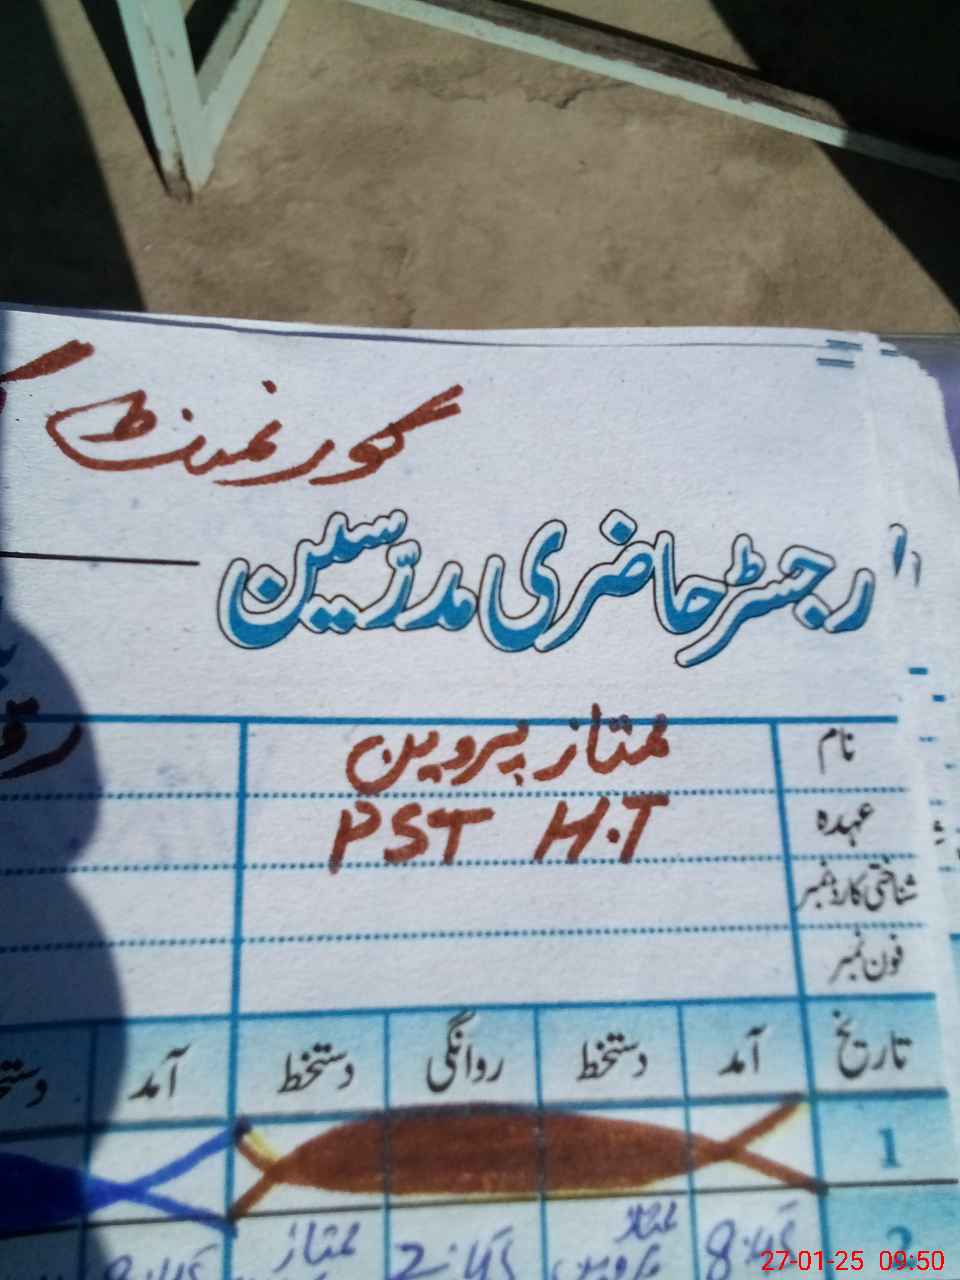 گورنمنٹ
رجسٹر حاضری مدرّسین
نام ممتاز پروین
عہدہ PST H.T
شناختی کارڈ نمبر
فون نمبر
تاریخ آمد دستخط روانگی دستخط آمد
1
2 8:45 ممتاز پروین 2:45 ممتاز
27-01-25 09:50